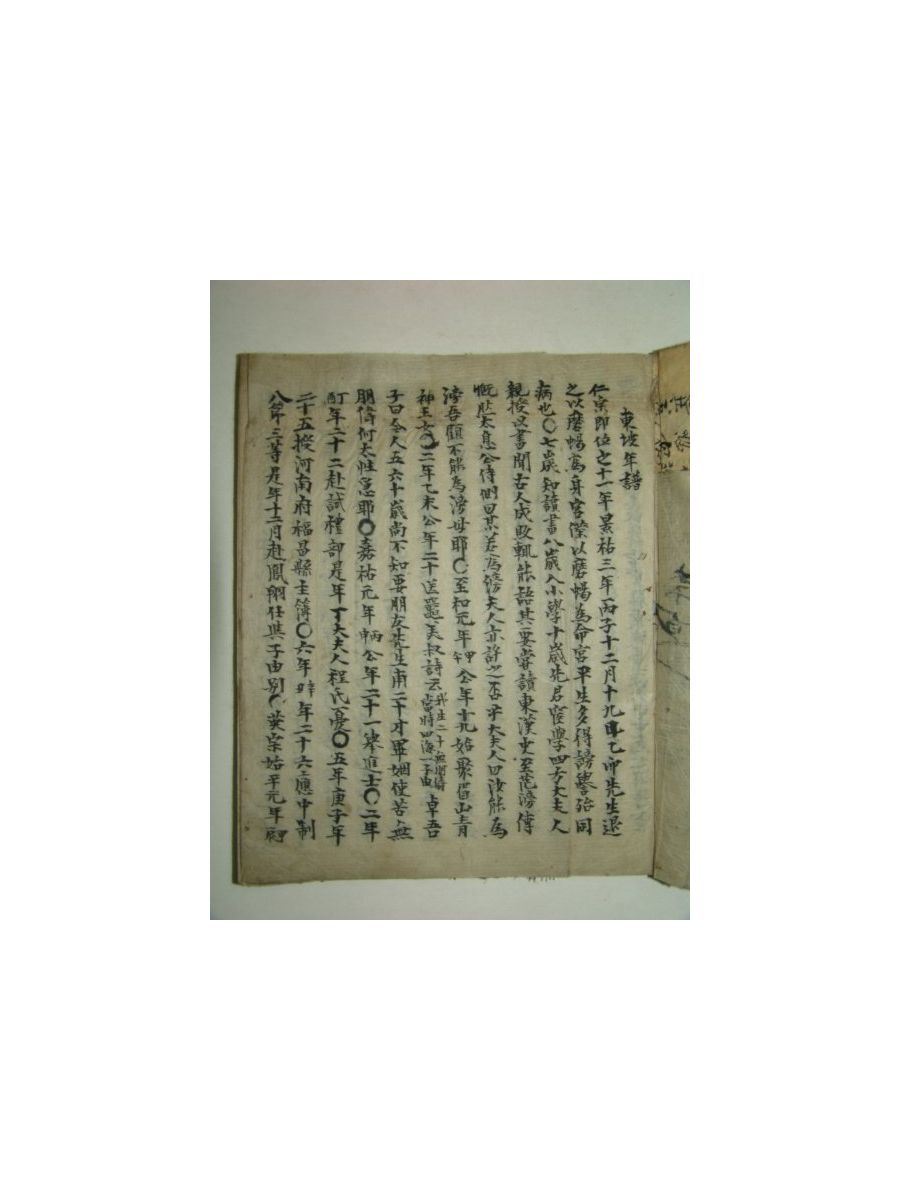 東坡年譜
仁宗卽位之十一年景祐三年丙子十二月十九日乙卯先生退
之以磨蝎爲身宮僕以磨蝎爲命宮平生多得謗譽殆同
病也〇七歲知讀書八歲入小學十歲先君宦學四方大夫人
親授以書聞古人成敗輒能語其要嘗讀東漢史至范滂傳
慨然太息公侍側曰某若爲滂夫人亦許之否乎大夫人曰汝能爲
滂吾顧不能爲滂母耶〇至和元年甲午公年十九始娶眉山靑
神王女〇二年乙未公年二十送晁美叔詩云我生二十無朋儔當時四海一子由 卓吾
子曰今人五六十歲尙不知要朋友先生甫二十才畢姻使苦無
朋儔何太性急耶〇嘉祐元年丙申公年二十一擧進士〇二年
丁酉年二十二赴試禮部是年丁大夫人程氏憂〇五年庚子年
二十五授河南府福昌縣主簿〇六年辛丑年二十六應中制
八第三等是年十二月赴鳳翔任與子由別〇英宗始平元年甲辰